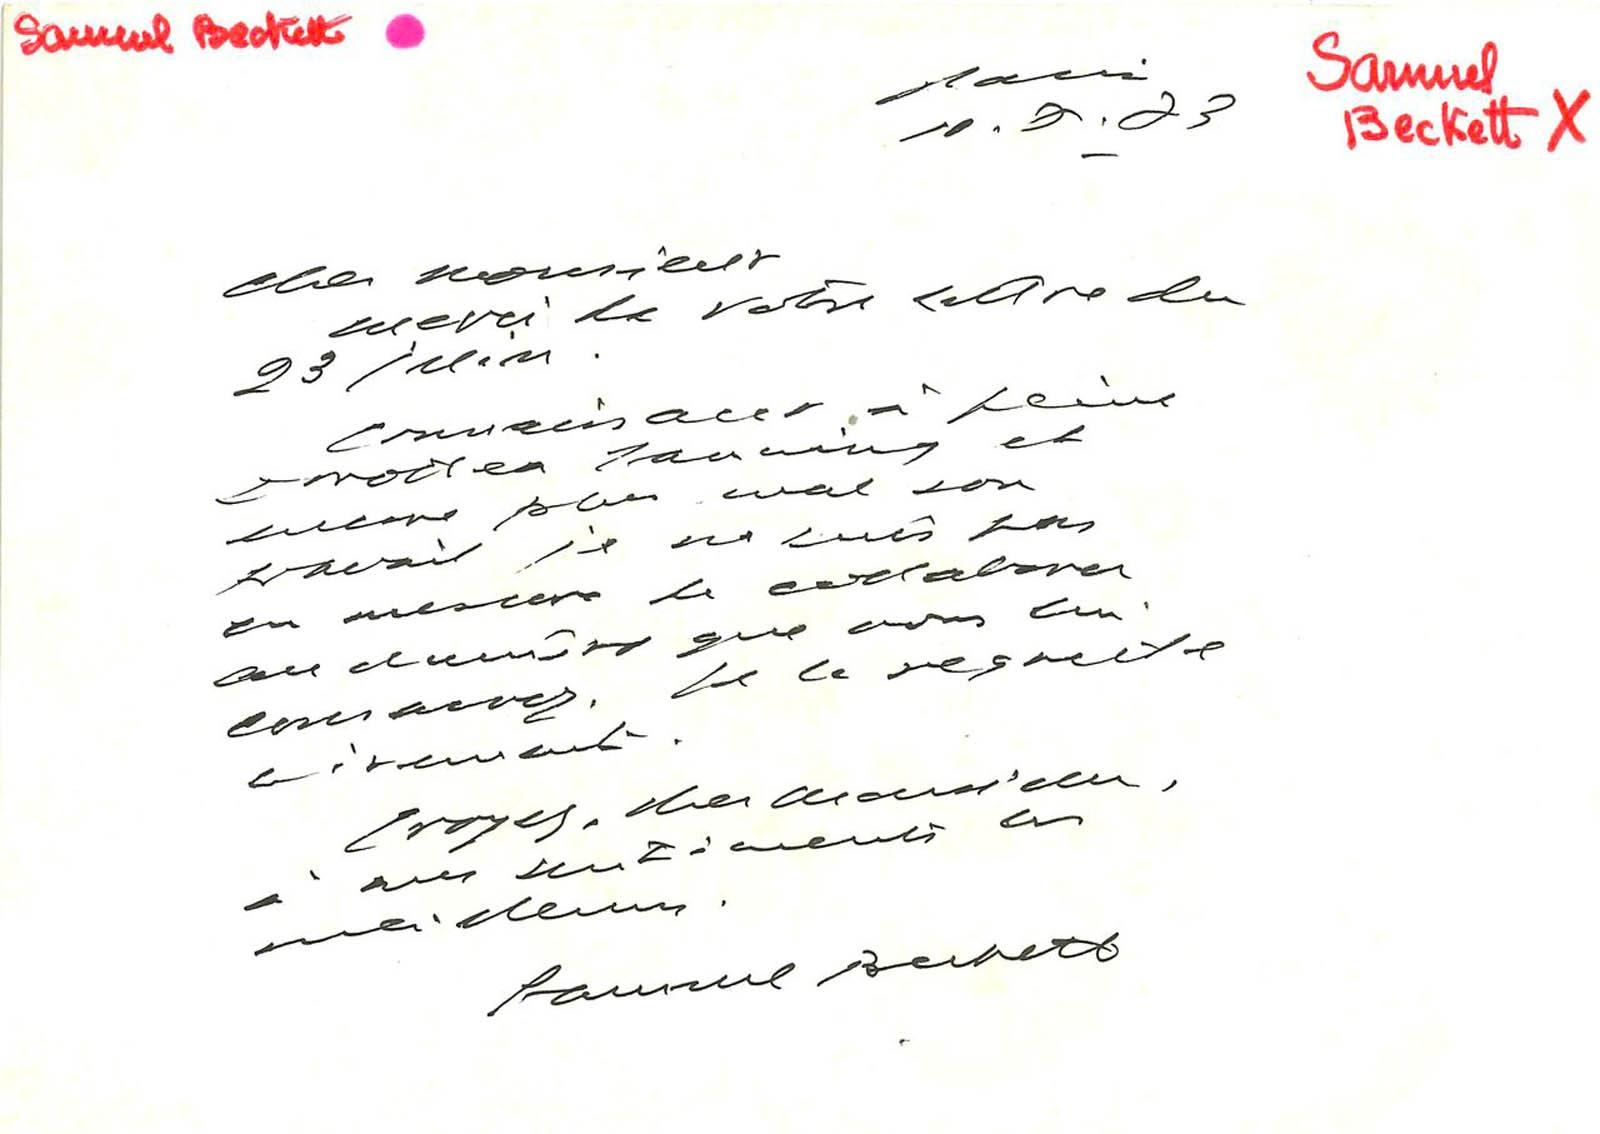 Samuel Beckett
Samuel
Beckett X
Paris
10.7.73
Cher Monsieur
Merci de votre lettre du
23 juin.
Connaissant à peine
Dorothea Tanning et
encore plus mal son
travail je ne suis pas
en mesure de collaborer
au numéro que vous lui
consacrez. Je le regrette
vivement.
Croyez, cher Monsieur,
à mes sentiments les
meilleurs.
Samuel Beckett